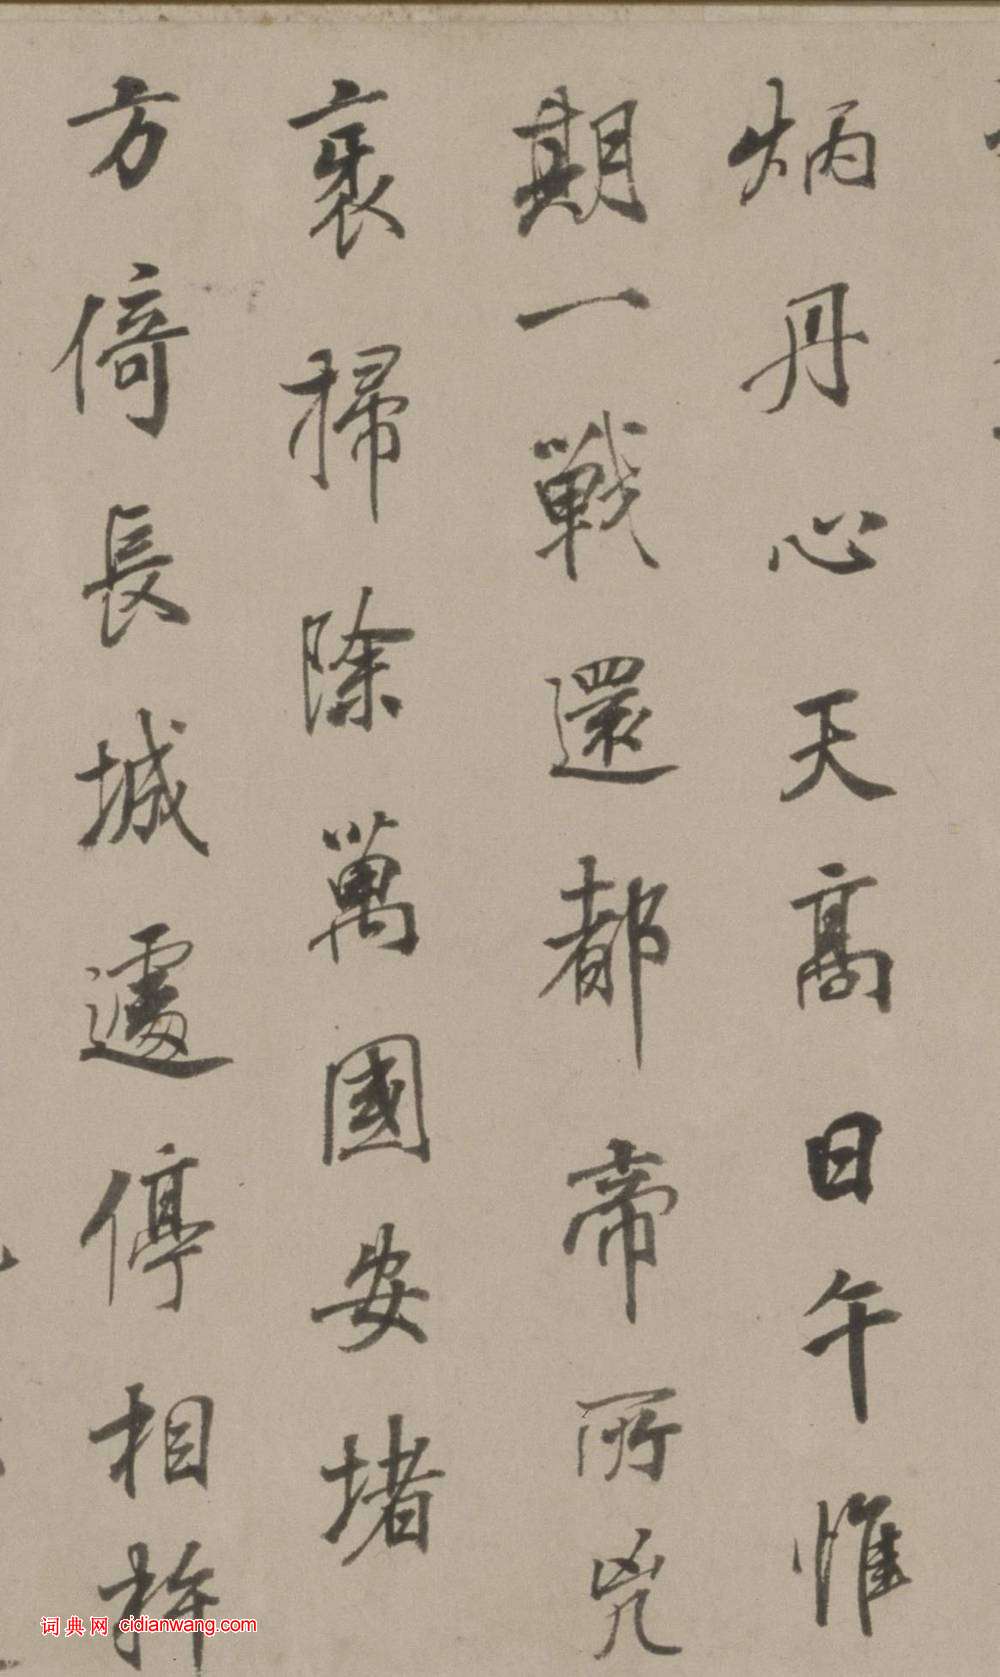 炳丹心天高日午惟
期一戰還都帝所兇
裘掃除萬國安堵
方倚長城遽停相
词典网 cidianwang.com